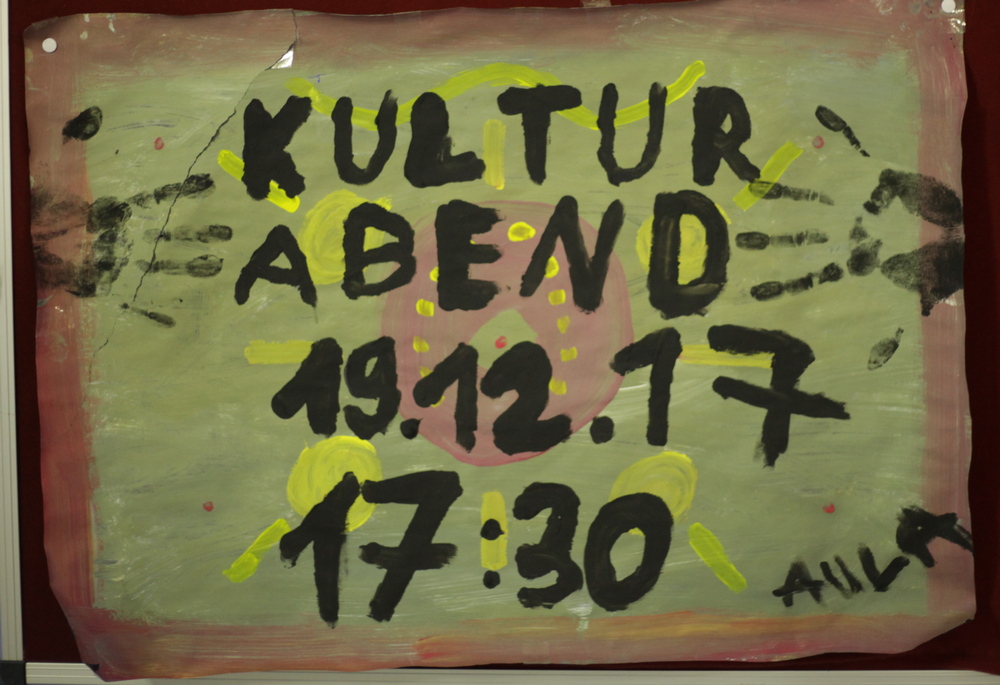 KULTUR
ABEND
19.12.17
17:30
AULA